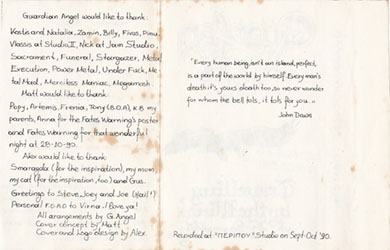 Guardian Angel would like to thank:
Kostis and Natalia, Zamin, Billy, Fivos, Dimi
Vlassis at Studio II, Nick at Jam Studio,
Sacrament, Funeral, Stargazer, Metal
Execution, Power Metal, Under Fuck, Me
tal Mad, Merciless Maniac, Megamosh.
Matt would like to thank:
Popy, Artemis, Frenia, Tony (B.O.A), K.B. my
parents, Anna for the Fates Warning's poster
and Fates Warning for that wonderful
night at 28-10-90.
Alex would like to thank:
Smaragda (for the inspiration), my mom,
my cat (for the inspiration, too) and Gus.
Greetings to Steve, Joey and Joe (Hail!)
Personal to Virna. I love ya!
All arrangements by G. Angel
Cover concept by Matt
Cover and Logo design by Alex.
"Every human being, isn't an island, perfect,
is a part of the world by himself. Every man's
death it's yours death too, so never wonder
for whom the bell tols, it tols for you..."
John Daws
Recorded at "ΠΕΡΙΠΟΥ" Studio on Sept-Oct '90.